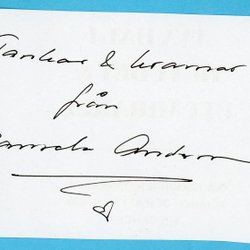 Tankar & kramar
från
Pamela Andersson